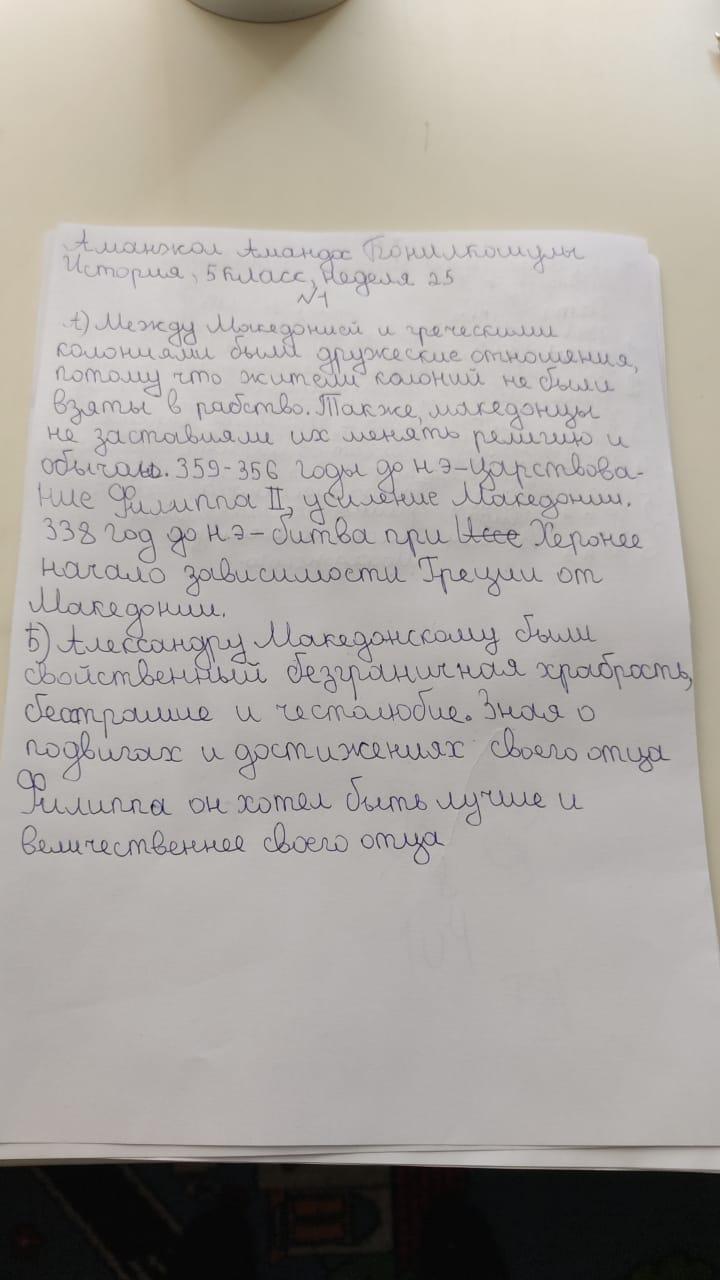 Аманжол Амандх
История, 5 класс, неделя 25
№1
А) Между Македонией и греческими
колониями были дружеские отношения,
потому что жители колоний не были
взяты в рабство. Также, македонцы
не заставляли их менять религию и
обычаи. 359-356 годы до н э-царствова-
ние Филиппа II, усиление Македонии.
338 год до н э-битва при Иссе Херонее
начало зависимости Греции от
Македонии.
Б) Александру Македонскому были
свойственный безграничная храбрость,
бесстрашие и честолюбие. Зная о
подвигах и достижениях своего отца
Филиппа он хотел быть лучше и
величественнее своего отца